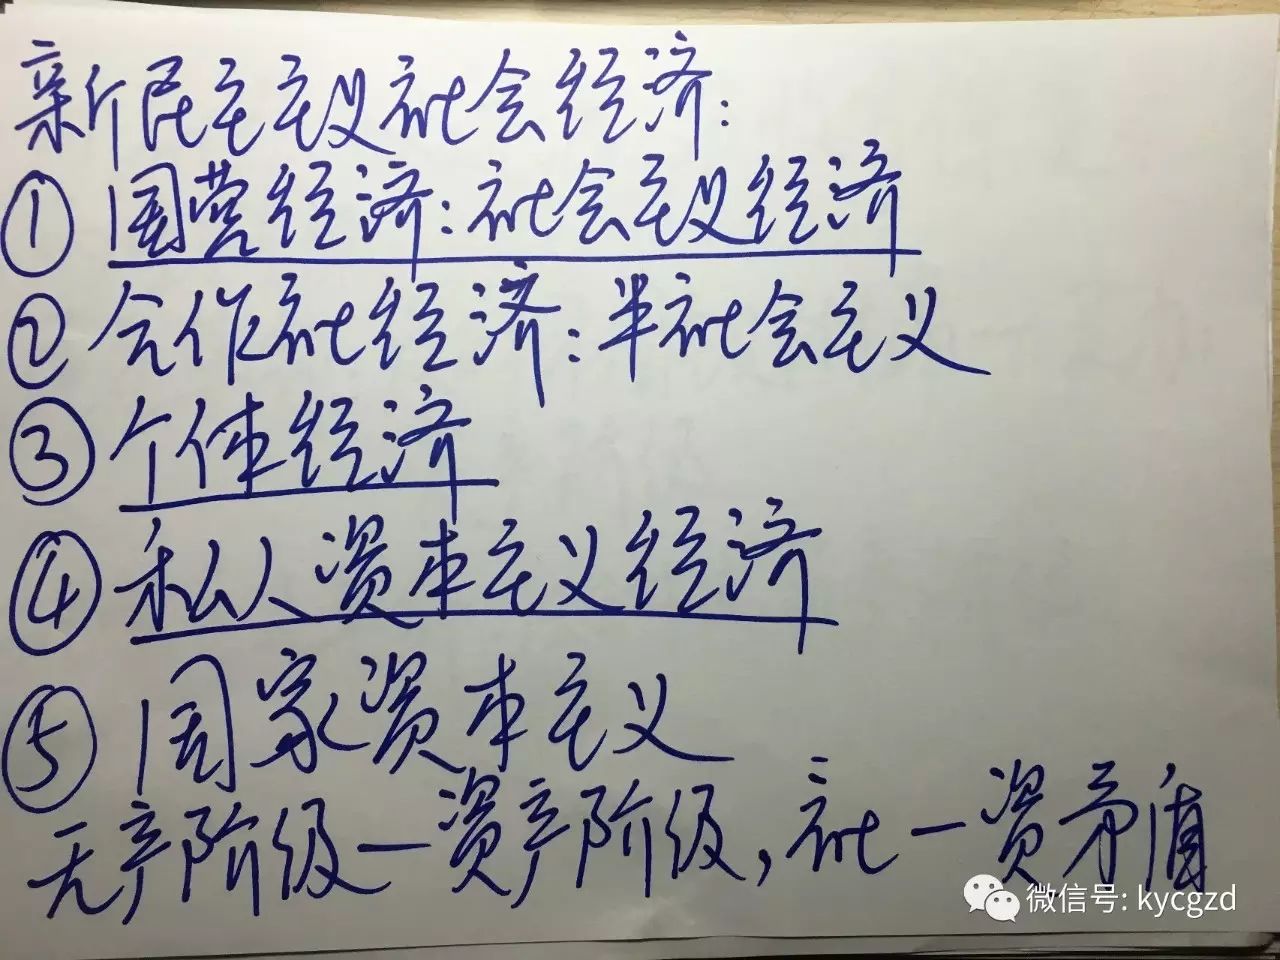 新民主主义社会经济:
① 国营经济:社会主义经济
② 合作社经济:半社会主义
③ 个体经济
④ 私人资本主义经济
⑤ 国家资本主义
无产阶级—资产阶级,社—资矛盾
微信号: kycgzd